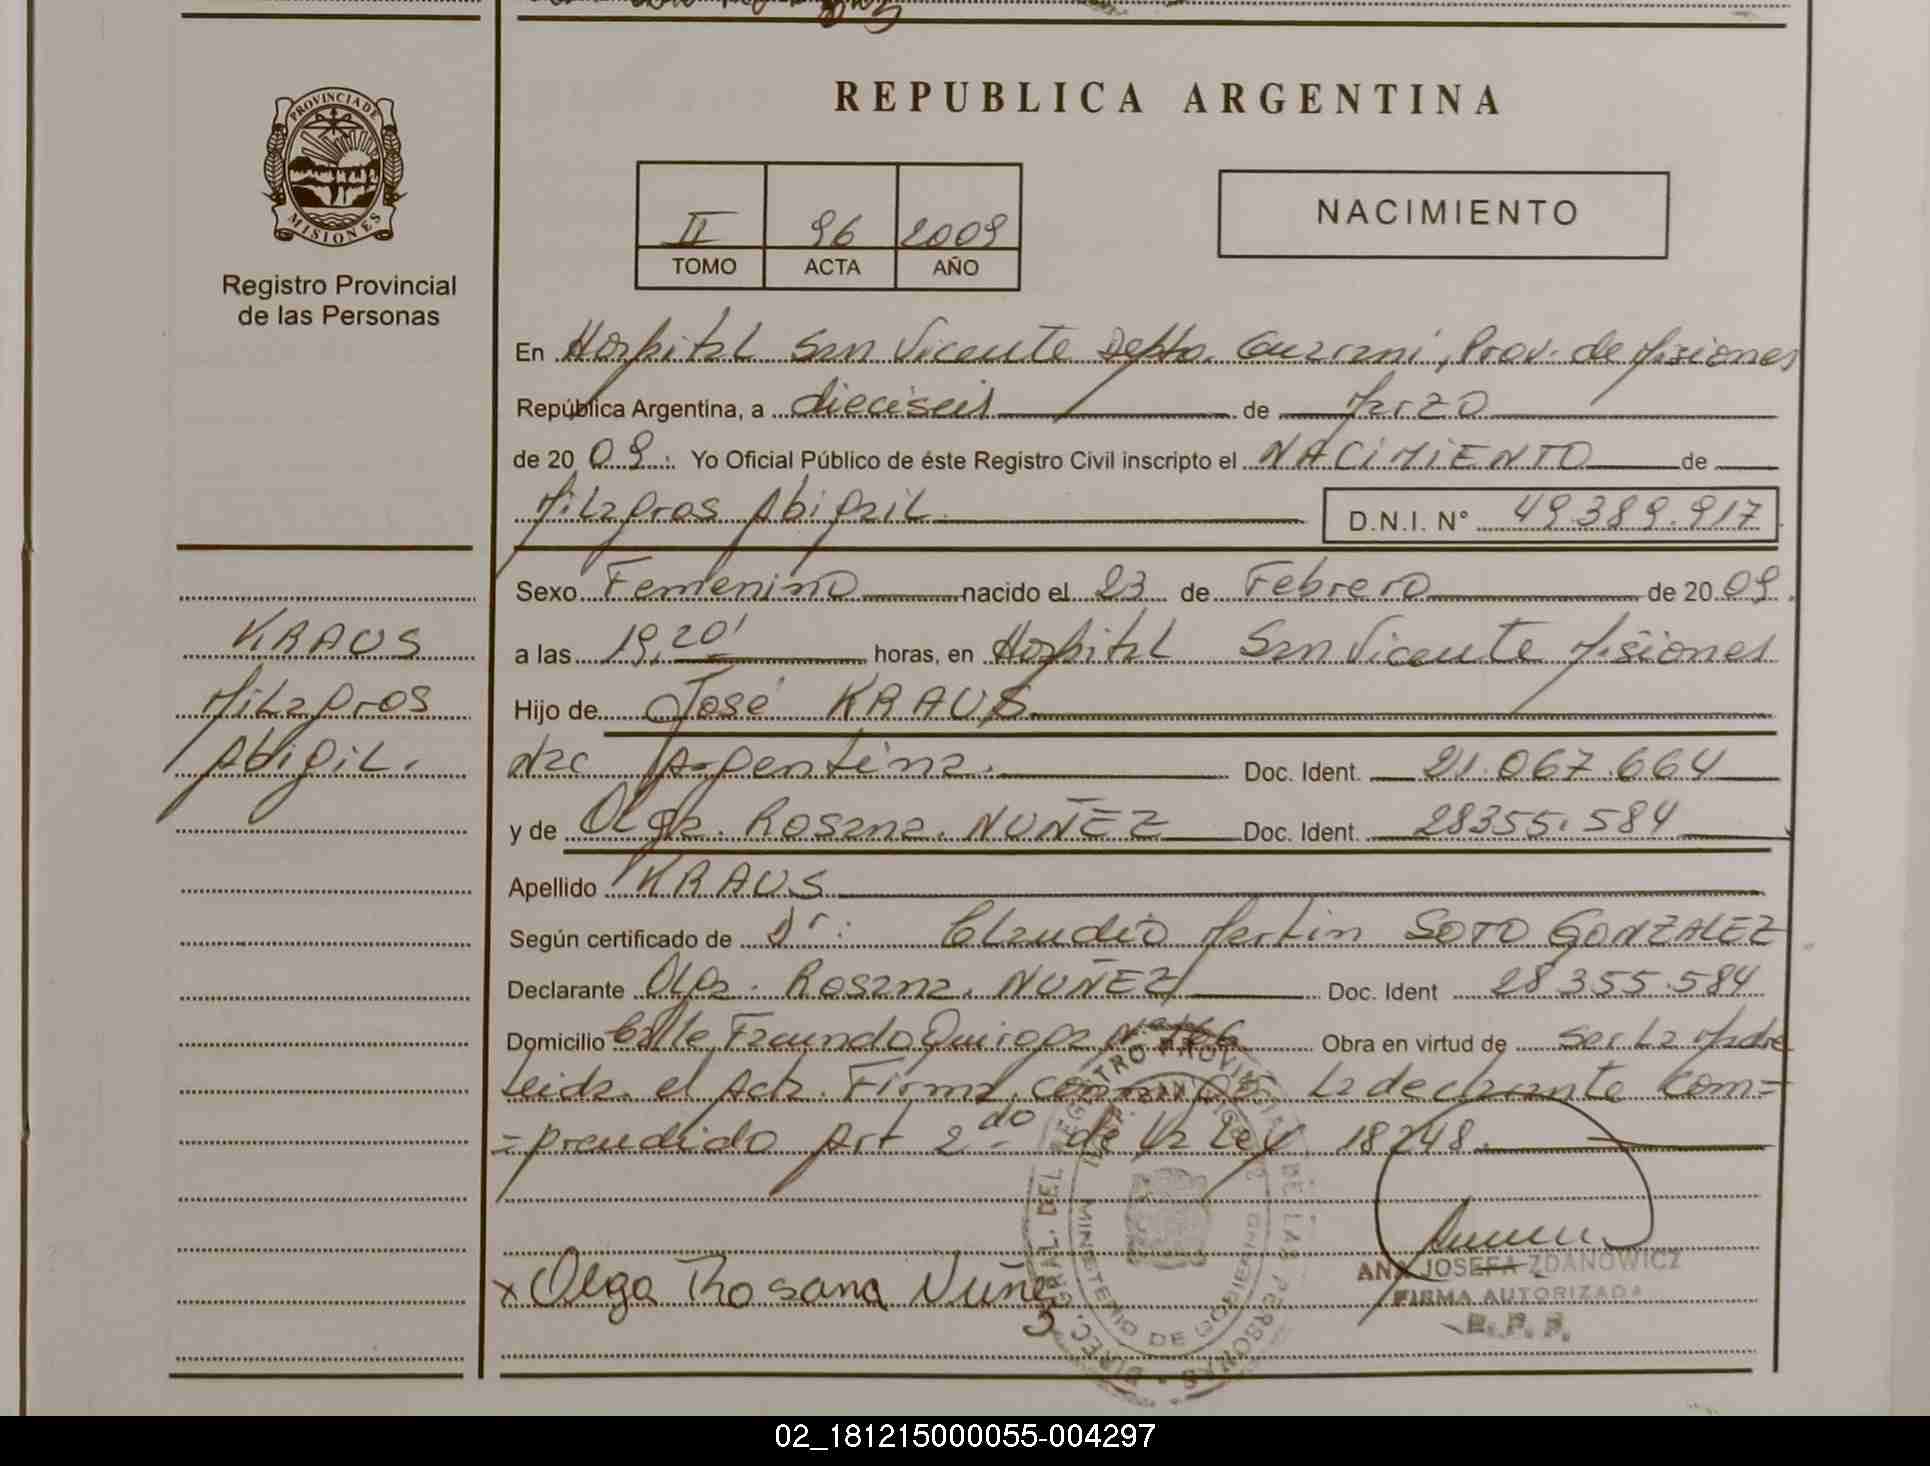 REPUBLICA ARGENTINA
PROVINCIA DE
MISIONES
Registro Provincial
de las Personas
II 96 2009
TOMO ACTA AÑO
NACIMIENTO
En Hospital San Vicente Depto. Guarani, Prov. de Misiones
República Argentina, a dieciseis de Marzo
de 20 09. Yo Oficial Público de éste Registro Civil inscripto el NACIMIENTO de
Milagros Abigail D.N.I. N° 49.389.917
Sexo Femenino nacido el 23 de Febrero de 20 09.
a las 19,20' horas, en Hospital San Vicente Misiones
Hijo de José KRAUS
Nac Argentina. Doc. Ident. 21.067.664
y de Olga. Rosana. NUÑEZ Doc. Ident. 28355.584
Apellido KRAUS
Según certificado de Dr: Claudio Martin SOTO GONZALEZ
Declarante Olga. Rosana. NUÑEZ Doc. Ident 28 355.584
Domicilio Calle Facundo Quiroga Obra en virtud de ser La Madre
Leida el Acta. Firma. La declarante Com=
=prendido Art 2do de La Ley 18248.
KRAUS
Milagros
Abigil.
x Olga Rosana Nuñez
DIREC. GRAL. DEL REGISTRO PROVINCIAL DE LAS PERSONAS
MINISTERIO DE GOBIERNO
ANA JOSEFA ZDANOWICZ
FIRMA AUTORIZADA
R. P. P.
02_181215000055-004297